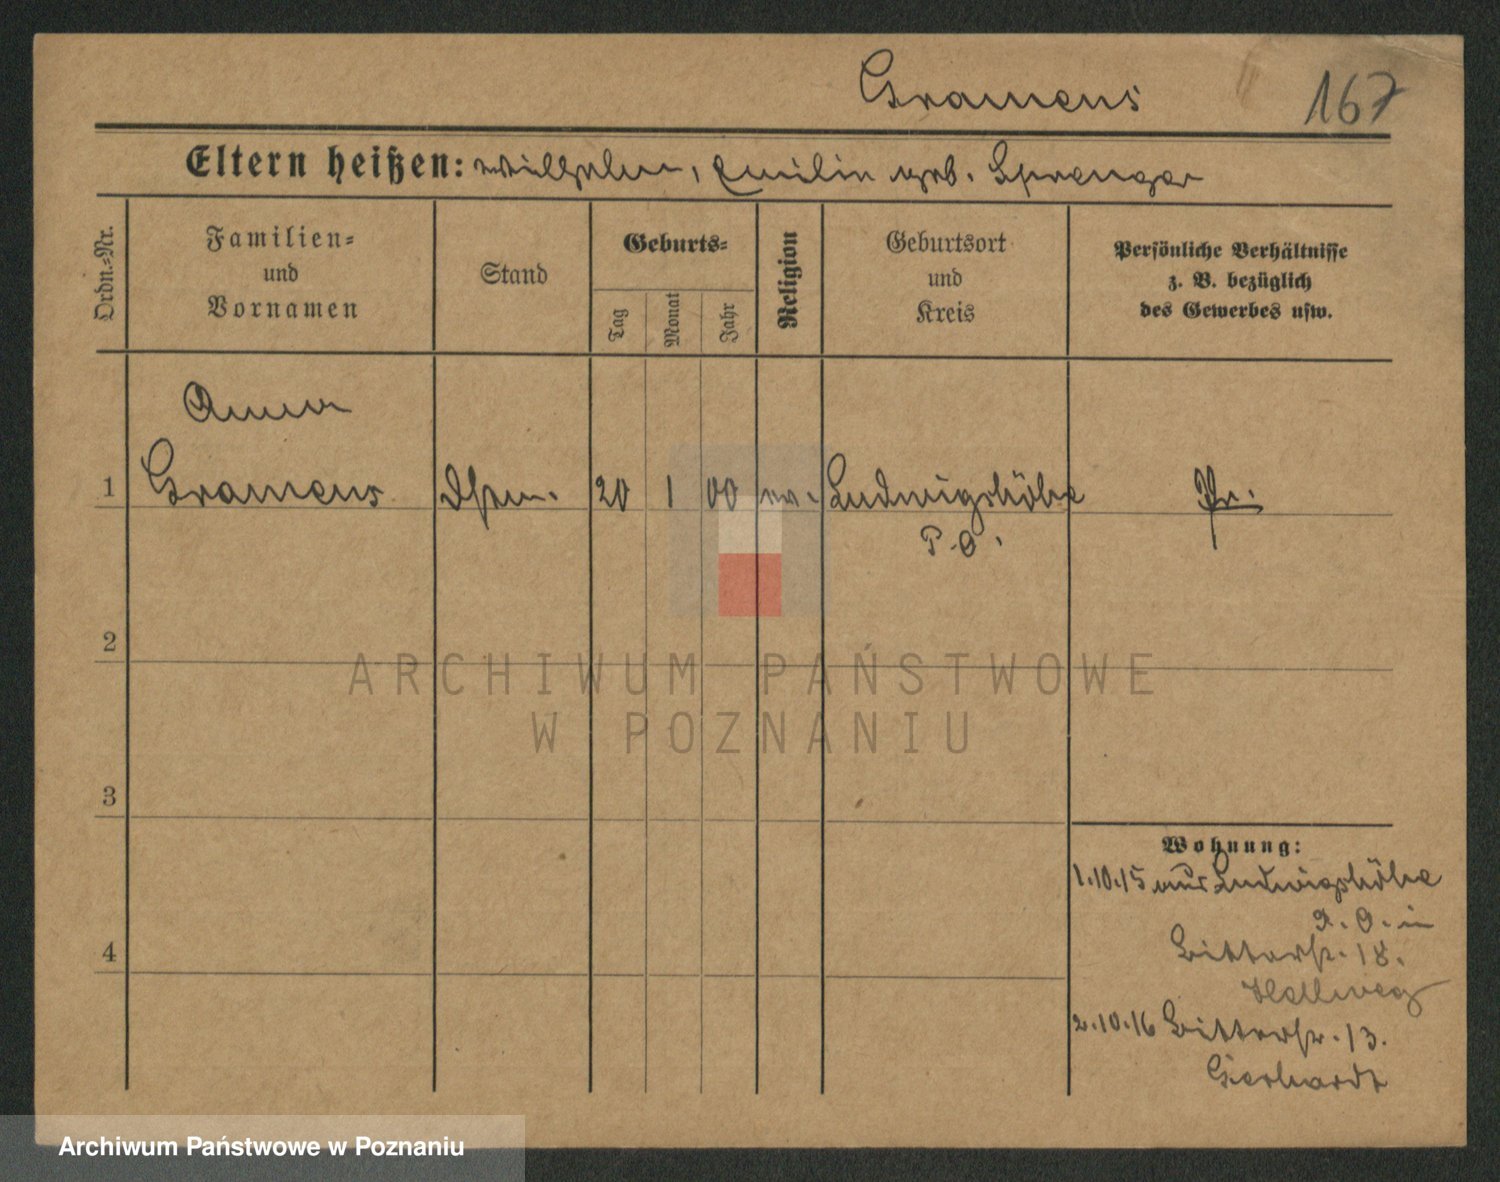 Gramens
167
Eltern heißen: Wilhelm, Emilie geb. Sprenger
Ordn.-Nr.
Familien-
und
Vornamen
Stand
Geburts-
Tag
Monat
Jahr
Religion
Geburtsort
und
Kreis
Persönliche Verhältnisse
z. B. bezüglich
des Gewerbes usw.
Anna
1 Gramens 20 1 00 ev. Ludwigshöhe Pr.
P. O.
2
ARCHIWUM PAŃSTWOWE
W POZNANIU
3
Wohnung:
1.10.15 aus Ludwigshöhe
P. O. in
Ritterstr. 18.
Hellweg
4
2.10.16 Ritterstr. 13.
Gerhardt
Archiwum Państwowe w Poznaniu